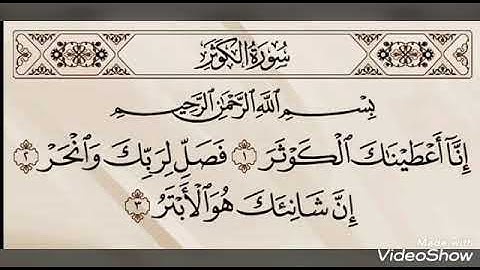 سُورَةُ الكَوْثَرِ
بِسْمِ اللَّهِ الرَّحْمَٰنِ الرَّحِيمِ
إِنَّآ أَعْطَيْنَاكَ الْكَوْثَرَ ١ فَصَلِّ لِرَبِّكَ وَانْحَرْ ٢
إِنَّ شَانِئَكَ هُوَ الْأَبْتَرُ ٣
Made with
VideoShow